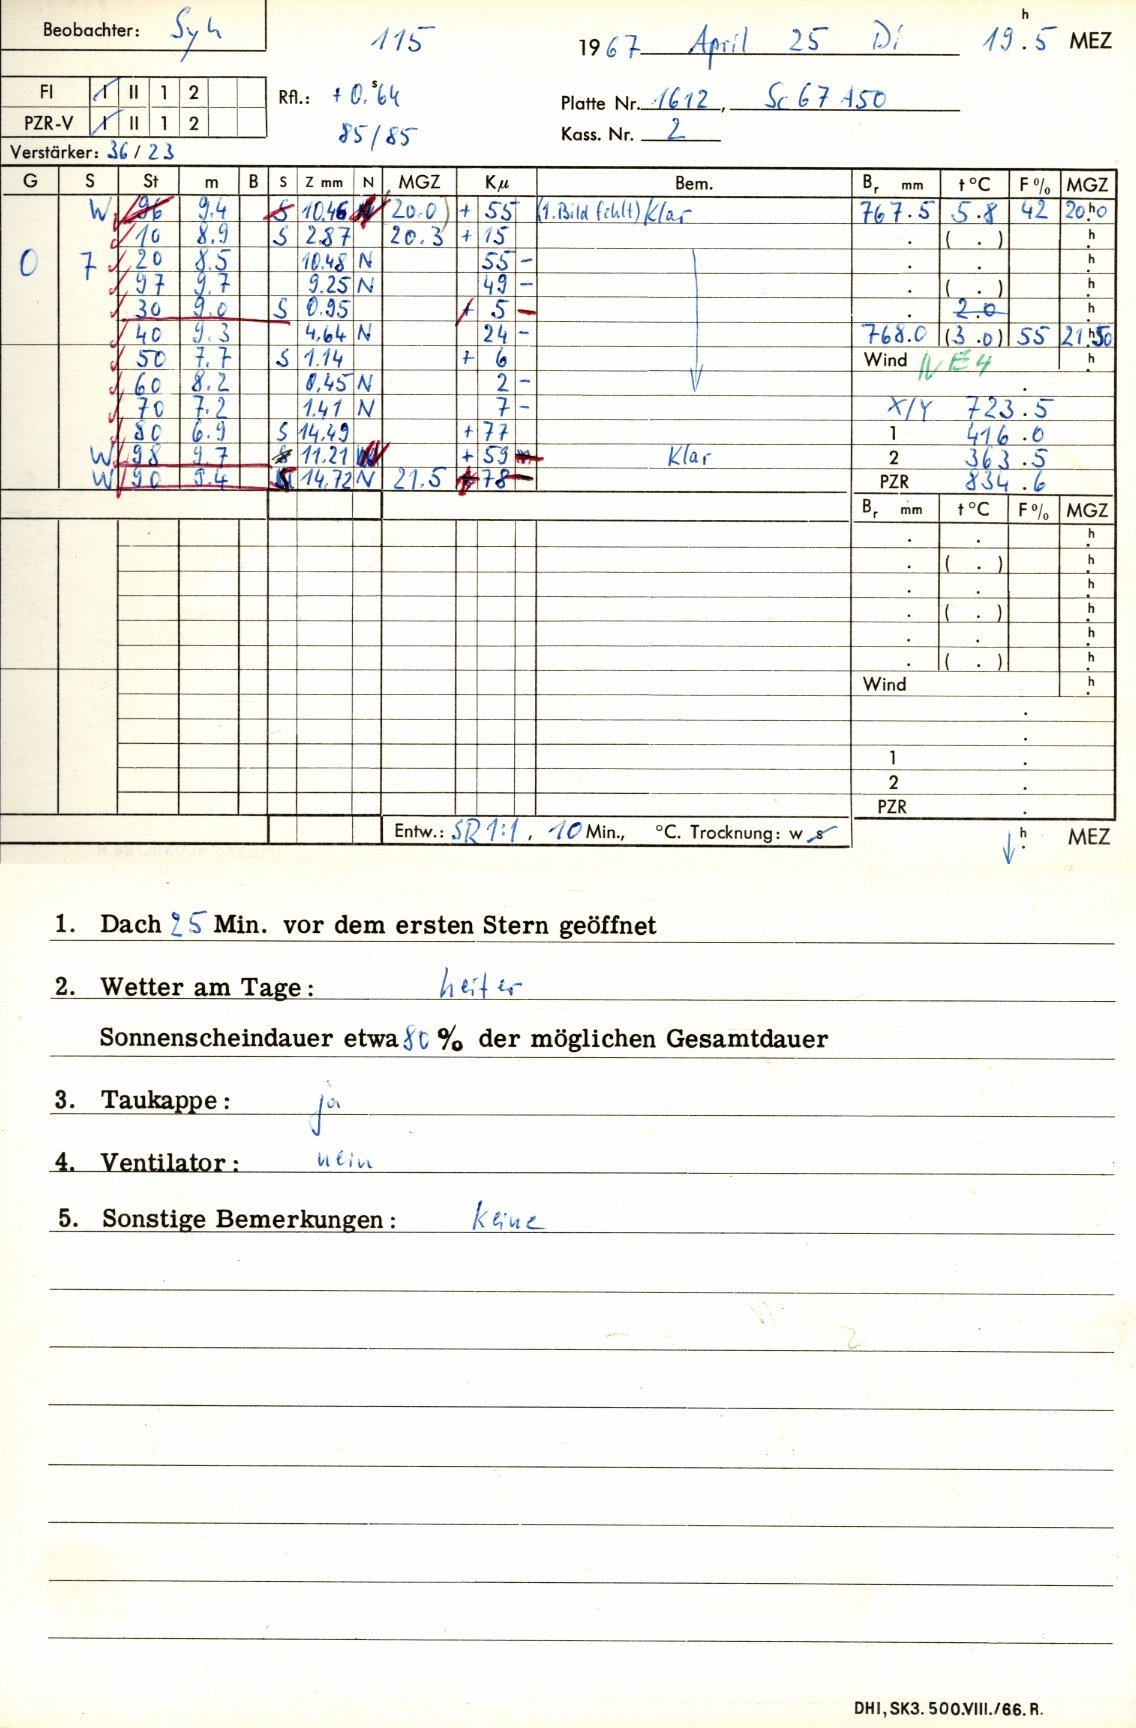 Beobachter: Syh 115 1967 April 25 Di 19.ʰ5 MEZ
FI I II 1 2 Rfl.: +0.ˢ64 Platte Nr. 1612, Sc 67 A50
PZR-V I II 1 2 85/85 Kass. Nr. 2
Verstärker: 36 / 23
G S St m B S Z mm N MGZ Kμ Bem. Br mm t °C F % MGZ
W 96 9.4 S 10.46 (20.0) + 55 (1. Bild fehlt) Klar 767.5 5.8 42 20.ʰ0
10 8.9 S 2.87 20.3 + 15 . ( . ) ʰ.
0 7 20 8.5 10.48 N 55 - . . ʰ.
97 9.7 9.25 N 49 - . ( . ) ʰ.
30 9.0 S 0.95 + 5 - . 2.0 ʰ.
40 9.3 4.64 N 24 - 768.0 (3.0) 55 21.ʰ50
50 7.7 S 1.14 + 6 Wind NE4 ʰ.
60 8.2 0.45 N 2 - .
70 7.2 1.41 N 7 - X/Y 723.5
80 6.9 S 14.49 + 77 1 416.0
W 98 9.7 S 11.21 N + 59 Klar 2 363.5
W 90 9.4 S 14.72 N 21.5 + 78 - PZR 834.6
Br mm t °C F % MGZ
. . ʰ.
. ( . ) ʰ.
. . ʰ.
. ( . ) ʰ.
. . ʰ.
. ( . ) ʰ.
Wind ʰ.
.
.
1 .
2 .
PZR .
Entw.: SR 1:1, 10 Min., °C. Trocknung: w s ʰ. MEZ
1. Dach 25 Min. vor dem ersten Stern geöffnet
2. Wetter am Tage: heiter
Sonnenscheindauer etwa 80 % der möglichen Gesamtdauer
3. Taukappe: ja
4. Ventilator: nein
5. Sonstige Bemerkungen: keine
DHI, SK3. 500.VIII./66. R.